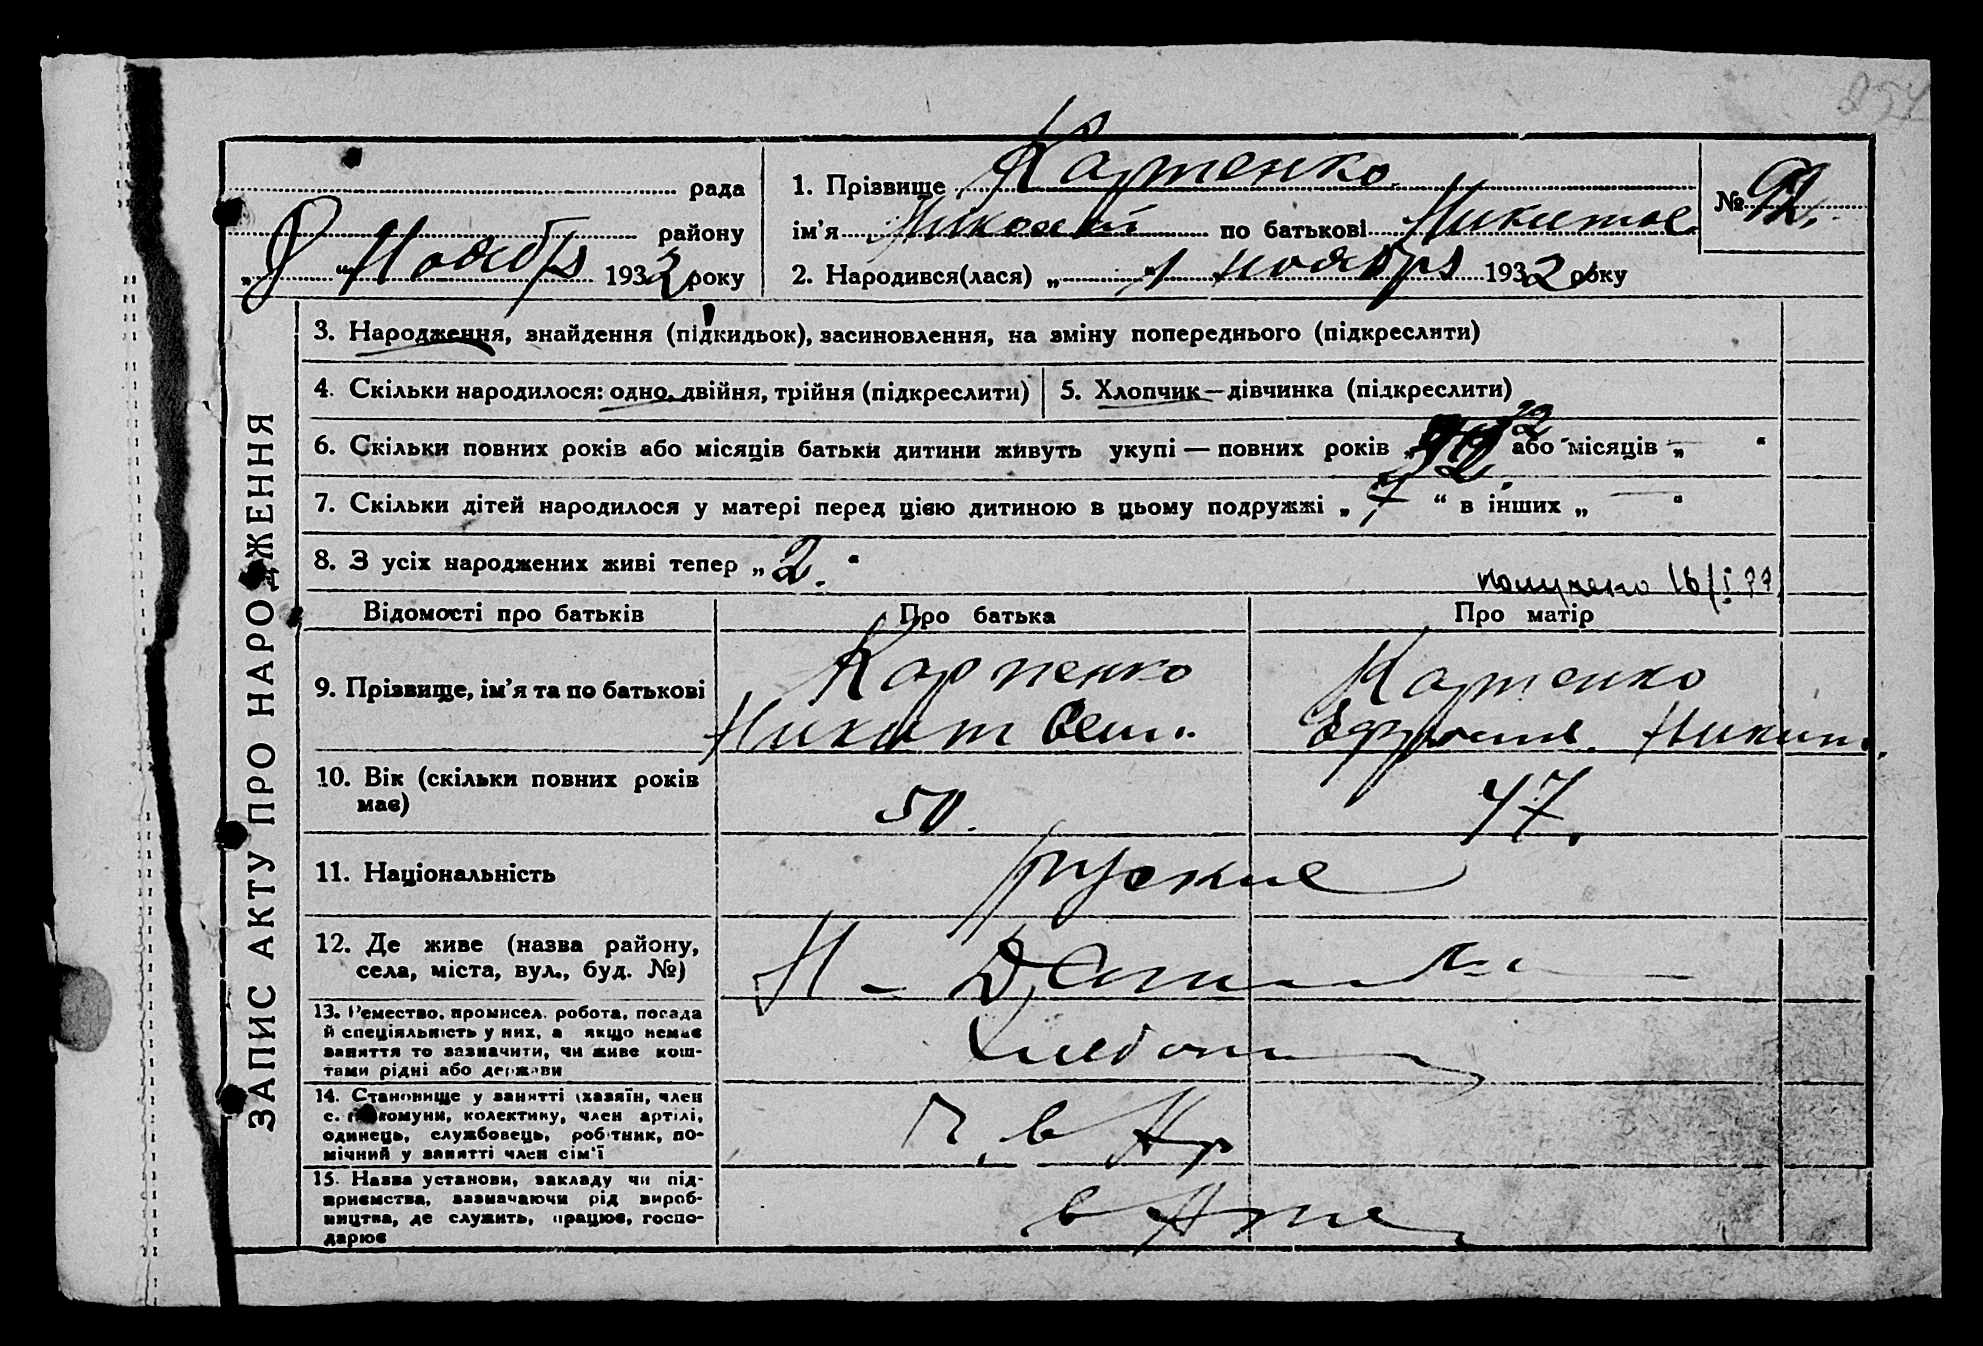 254
рада
1. Прізвище Карпенко
№ 92.
району
ім'я Николай по батькові Никитов.
„8“ Ноября 1932 року
2. Народився(лася) „1 ноября 1932 року
3. Народження, знайдення (підкидьок), засиновлення, на зміну попереднього (підкреслити)
4. Скільки народилося: одно, двійня, трійня (підкреслити)
5. Хлопчик—дівчинка (підкреслити)
6. Скільки повних років або місяців батьки дитини живуть укупі — повних років „ 22 або місяців „ — “
7. Скільки дітей народилося у матері перед цією дитиною в цьому подружжі „ 7 “ в інших „ — “
8. З усіх народжених живі тепер „ 2. “
получено 16/I
Відомості про батьків
Про батька
Про матір
9. Прізвище, ім'я та по батькові
Карпенко
Карпенко
Никит Сем.
Ефросин. Никит.
10. Вік (скільки повних років
має)
50.
47.
11. Національність
руские
12. Де живе (назва району,
села, міста, вул., буд. №)
Н -
13. Ремество, промисел, робота, посада
й спеціяльність у них, а якщо немає
заняття то зазначити, чи живе кош-
тами рідні або держави
Хлебоп
14. Становище у занятті (хазяїн, член
с. г. комуни, колективу, член артілі,
одинець, службовець, робітник, по-
мічний у занятті член сім'ї
ч. в Ар
15. Назва установи, закладу чи під-
приємства, зазначаючи рід вироб-
ництва, де служить, працює, госпо-
дарює
в Арте
ЗАПИС АКТУ ПРО НАРОДЖЕННЯ